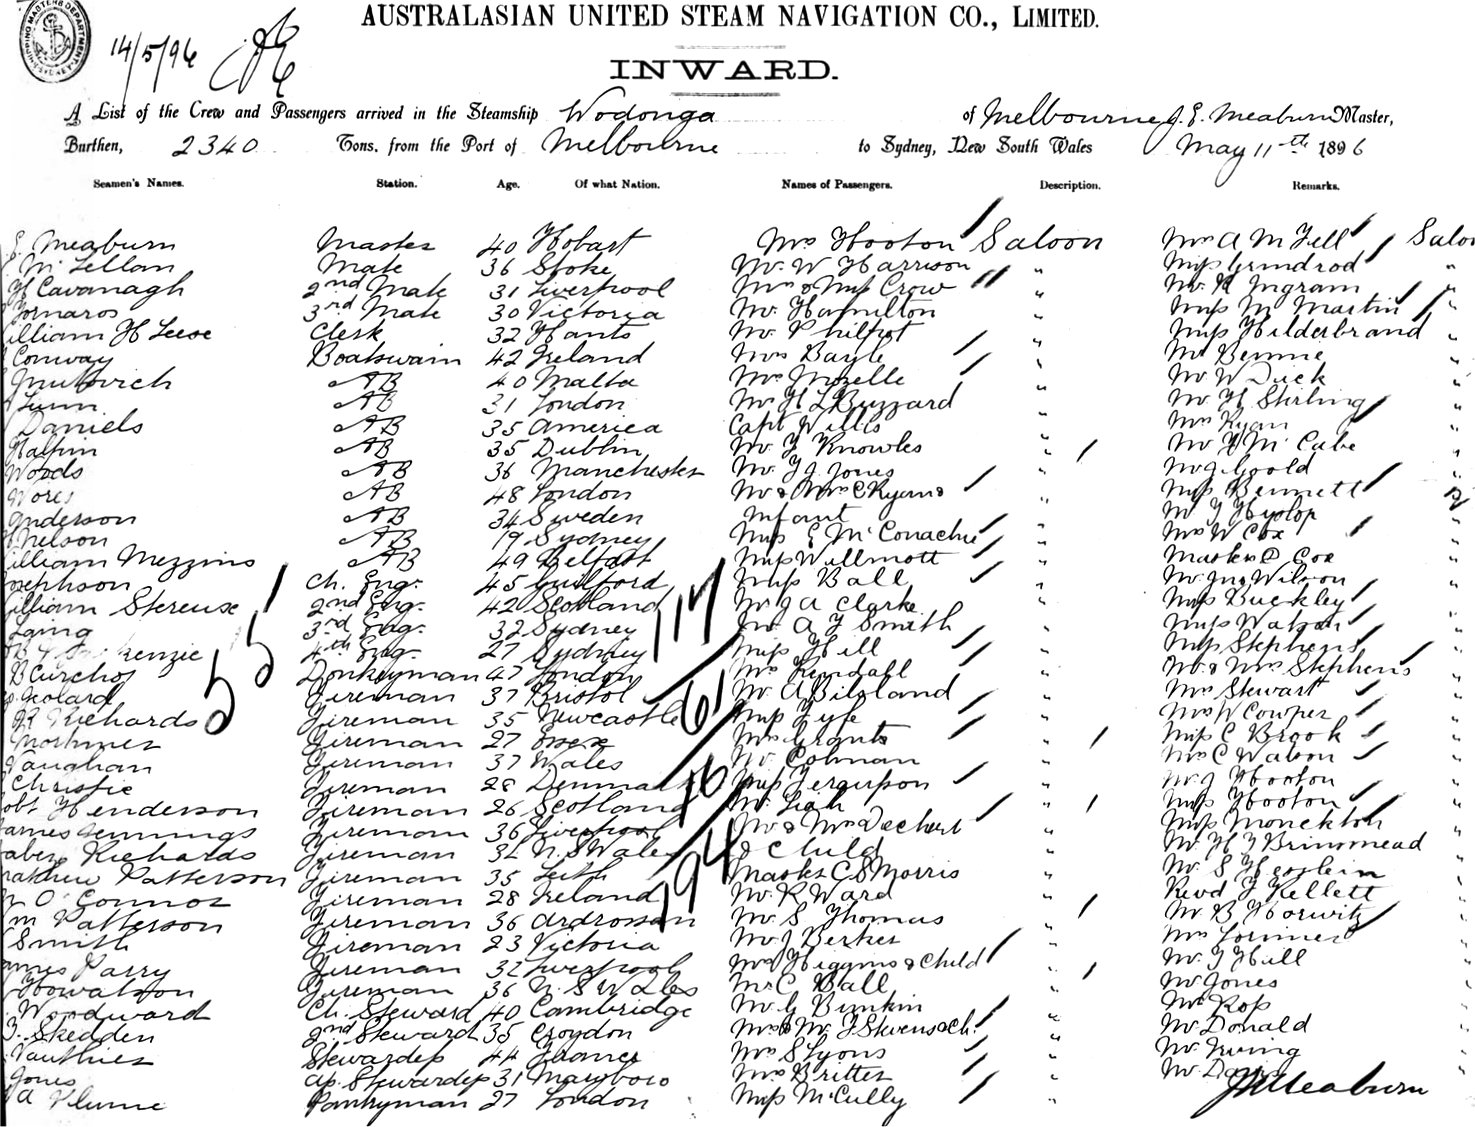 AUSTRALASIAN UNITED STEAM NAVIGATION CO., LIMITED.
14/5/96
INWARD.
A List of the Crew and Passengers arrived in the Steamship Wodonga of Melbourne J. E. Meaburn Master,
Burthen, 2340 Tons, from the Port of Melbourne to Sydney, New South Wales May 11th 1896
Seamen's Names. Station. Age. Of what Nation. Names of Passengers. Description. Remarks.
E. Meaburn Master 40 Hobart Mrs Hooton Saloon Mrs A M Fell Saloo
McLellan Mate 36 Stoke Mr W Harrison " Miss Grindrod "
H Cavanagh 2nd Mate 31 Liverpool Mrs & Miss Crow " Mr R Ingram "
3rd Mate 30 Victoria Mr Hamilton " Miss M Martin "
illiam H Leese Clerk 32 Hants Mr Philpot " Miss Hilderbrand "
Conway Boatswain 42 Ireland Mrs Bayle " Mr Bennie "
AB 40 Malta Mrs Mozelle " Mr W Duck "
Lunn AB 31 London Mr H L Buzzard " Mr H Stirling "
Daniels AB 35 America Capt Willis " Mrs Ryan "
Halpin AB 35 Dublin Mr F Knowles " Mr McCabe "
Woods AB 36 Manchester Mr F J Jones " Mr J Goold "
AB 48 London Mr & Mrs C Ryans " Miss Bennett "
Anderson AB 34 Sweden Infant " Mr Hyslop "
Nelson AB 19 Sydney Miss E McConachie " Mrs W Cox "
illiam Mezzins AB 49 Belfast Miss Willmott " Master D Cox "
osephson Ch. Eng. 45 Guilford Miss Ball " Mr Jno Wilson "
illiam Stereuse 2nd Eng. 42 Scotland Mr J A Clarke " Miss Buckley "
Laing 3rd Eng. 32 Sydney Mr A F Smith " Miss Watson "
kenzie 4th Eng. 27 Sydney Miss Hill " Miss Stephens "
Donkeyman 47 London Mrs Kendall " Mr & Mrs Stephens "
Fireman 37 Bristol Mr A Bilsland " Mrs Stewart "
R Richards Fireman 35 Newcastle Miss Fyfe " Mrs W Cowper "
Mortimer Fireman 27 Essex Mrs Grants " Miss C Brook "
Vaughan Fireman 37 Wales Mr Colman " Mrs C Watson "
Christie Fireman 28 Denmark Miss Ferguson " Mr J Hooton "
obt Henderson Fireman 26 Scotland Mr Leah " Miss Hooton "
ames Jennings Fireman 36 Liverpool Mr & Mrs Dechert " Miss Monckton "
aber Richards Fireman 32 N. S Wales & Child " Mr H J Brinsmead "
atthew Patterson Fireman 35 Leith Master C S Morris " Mr S
O'Connor Fireman 28 Ireland Mr R Ward " Revd F Kellett "
m Patterson Fireman 36 Ardrossan Mr S Thomas " Mr B Horwitz "
Smith Fireman 23 Victoria Mr J Berker " Mrs Lorimer "
ames Parry Fireman 32 Liverpool Mrs Higgins & Child " Mr F Hall "
Howatson Fireman 36 N. S Wales Mr C Ball " Mr Jones "
Woodward Ch. Steward 40 Cambridge Mr G Bunkin " Mr Ross "
Skedden 2nd Steward 35 Croydon Mrs & Mr F Stevens & Ch. " Mr Donald "
Vauthier Stewardess 44 France Mrs S Lyons " Mr Irving "
Jones as. Stewardess 31 Maryboro Mrs Britter " Mr Davis "
A Plume Pantryman 27 London Miss McCully "
55
117
61
16
194
J E Meaburn